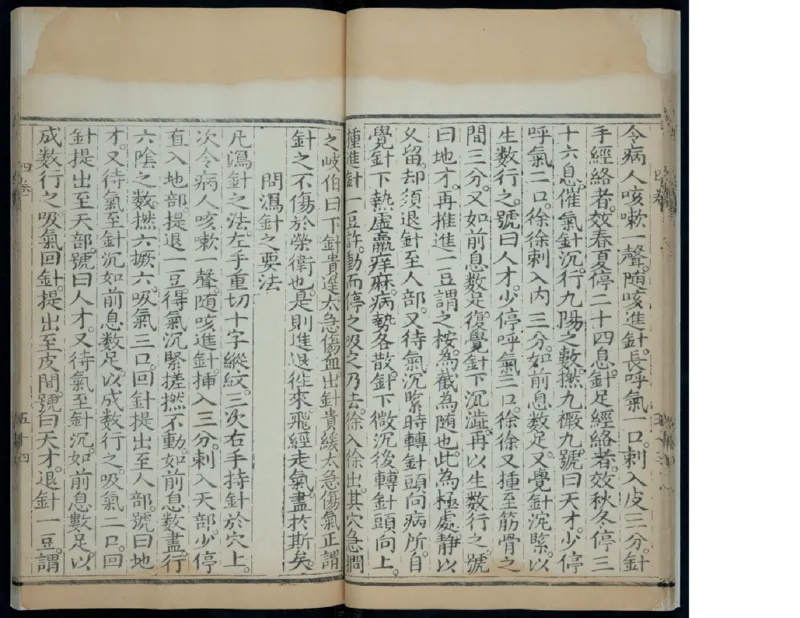 令病人咳嗽一聲。隨咳進針。長呼氣一口。刺入皮三分。針
手經絡者。效春夏停二十四息。針足經絡者。效秋冬停三
十六息。催氣針沉。行九陽之數。撚九撅九。號曰天才。少停
呼氣二口。徐徐刺入肉三分。如前息數足。又覺針沉緊。以
生數行之。號曰人才。少停呼氣三口。徐徐又插至筋骨之
間三分。又如前息數足。復覺針下沉澁。再以生數行之。號
曰地才。再推進一豆。謂之按。為截為隨也。此為極處。靜以
久留。却須退針至人部。又待氣沉緊時。轉針頭向病所。自
覺針下熱。虛羸痒麻。病勢各散。針下微沉後。轉針頭向上。
插進針一豆許。動而停之。吸之乃去。徐入徐出。其穴急捫
之。岐伯曰。下針貴遲。太急傷血。出針貴緩。太急傷氣。正謂
針之不傷於榮衛也。是則進退徃來。飛經走氣。盡扵斯矣。
問瀉針之要法
凡瀉針之法。左手重切十字縱紋。三次右手持針於穴上。
次令病人咳嗽一聲。隨咳進針。插入三分。刺入天部。少停
直入地部。提退一豆。得氣沉緊。搓撚不動。如前息數盡。行
六陰之數。撚六撅六。吸氣三口。回針提出至人部。號曰地
才。又待氣至針沉。如前息數足。以成數行之。吸氣二口。回
針提出至天部。號曰人才。又待氣至針沉。如前息數足。以
成數行之。吸氣回針。提出至皮間。號曰天才。退針一豆。謂
四卷
五十四